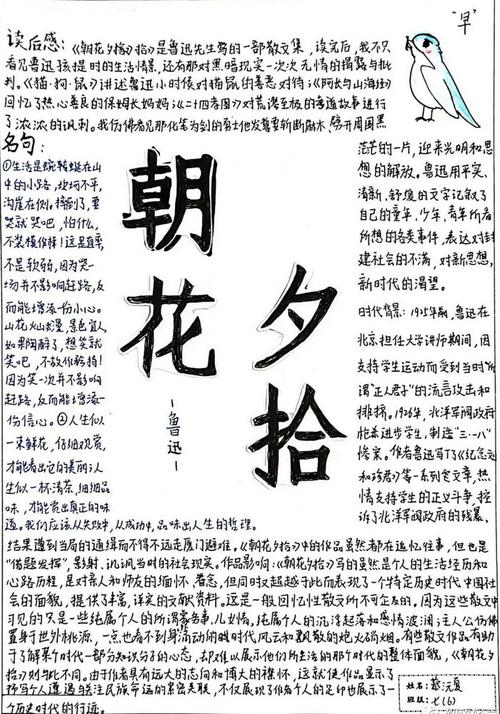 "早"
读后感：《朝花夕拾》拾》是鲁迅先生写的一部散文集，读完后，我不只
看见鲁迅孩提时的生活情景，还有那对黑暗现实一次次无情的揭露与批
判。《猫·狗·鼠》讲述鲁迅小时候对猫鼠的善恶对待；《阿长与山海经》
回忆了热心善良的保姆长妈妈；《二十四孝图》对荒谬至极的孝道故事进行
了浓浓的讽刺。我仿佛看见那化笔为剑的勇士他发誓要斩断荆木，劈开周围黑
茫茫的一片，迎来光明和思
想的解放。鲁迅用平实、
清新、舒缓的文字记叙了
自己的童年，少年，青年所看
所想的各类事件，表达对封
建社会的不满，对新思想，
新时代的渴望。
名句：
①生活是蜿蜒在山
中的小路，坎坷不平，
沟崖在侧。摔倒了，要
哭就哭吧，怕什么，
不装模作样！这是直率，
不是软弱，因为哭一
场并不影响赶路，反
而能增添一份小心。
山花烂漫，景色宜人，
如果陶醉了，想笑就
笑吧，不故作矜持！
因为笑一次并不影响
赶路，反而能增添一
份信心。②人生似
一束鲜花，仔细观赏，
才能看出它的美丽；人
生似一杯清茶，细细品
味，才能赏出真正的味
道。我们应该从失败中，从成功中，品味出人生的哲理。
朝花
夕拾
-鲁迅-
时代背景：1925年前，鲁迅在
北京担任大学讲师期间，因
支持学生运动而受到当时"所
谓"正人君子"的流言攻击和
排挤。1926年，北洋军阀政府
枪杀进步学生，制造"三·一八"
惨案。作者鲁迅写了《纪念刘
和珍君》等一系列文章，热
情支持学生的正义斗争，控
诉了北洋军阀政府的残暴。
结果遭到当局的通缉而不得不远走厦门避难。《朝花夕拾》中的作品虽然都在追忆往事，但也是
"借题发挥"，影射、讥讽当时的社会现实。作品影响：《朝花夕拾》写的虽然是个人的生活经历和
心路历程，是对亲人和师友的缅怀、眷念，但同时又超越于此而表现了一个特定历史时代中国社
会的面貌，提供了丰富，详实的文献资料。这是一般回忆性散文所不可企及的。因为这些散文中
可见的只是一些纯属个人的所谓善事，儿女情，纯属个人的沉浮起落和感情波澜；主人公仿佛
置身于世外桃源，一点也看不到身流动的时代风云和飘散的炮火硝烟。有些散文作品有助
于了解某个时代一部分知识分子的心态，却难以展示他们所生活的那个时代的整体面貌，《朝花夕
拾》则与此不同。由于作者具有远大的志向和博大的襟怀，这就使作品显示了
抒写个人遭遇与关注民族命运的紧密关联，不仅展现了作者个人的足印也展示了一
个历史时代的行迹。
姓名：
班级：七(6)